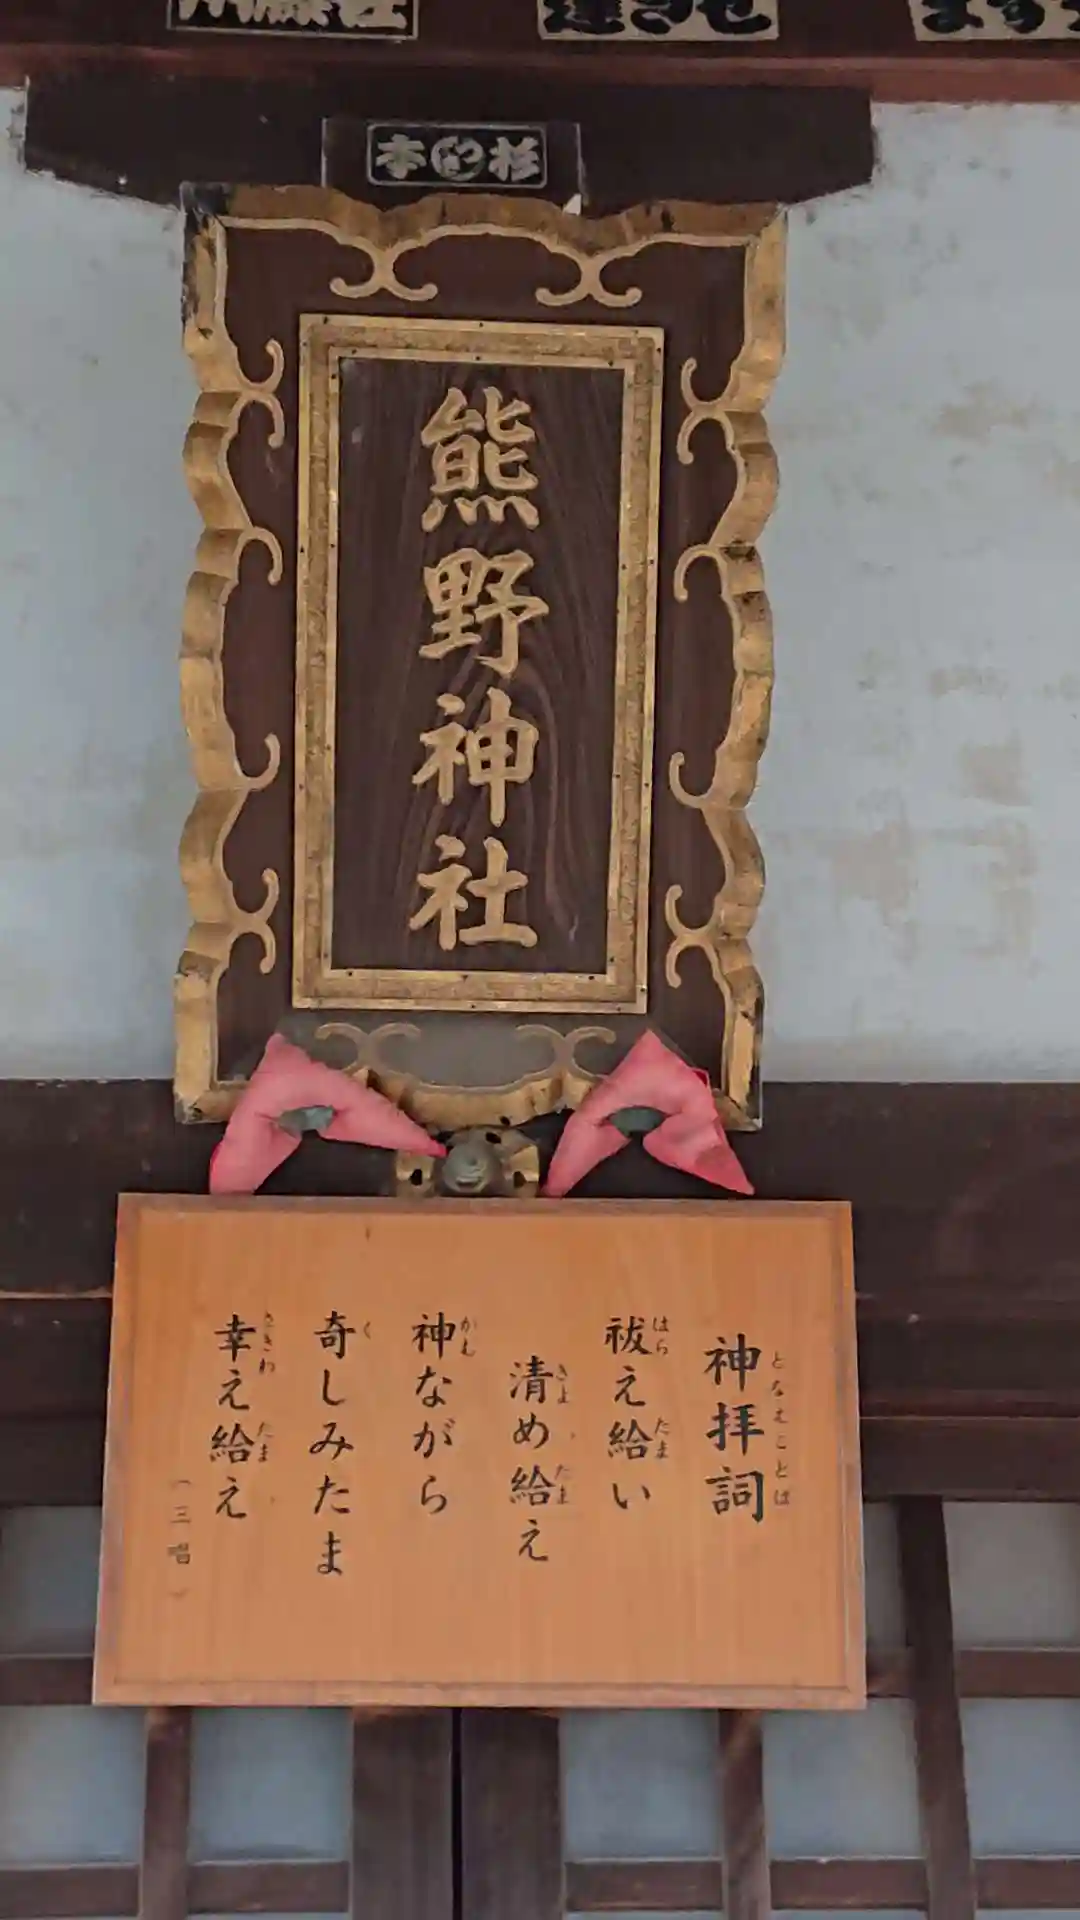 熊野神社
神拝詞
となえことば
祓え給い
はら
たま
清め給え
きよ
たま
神ながら
かむ
奇しみたま
く
幸え給え
さきわ
たま
(三唱)